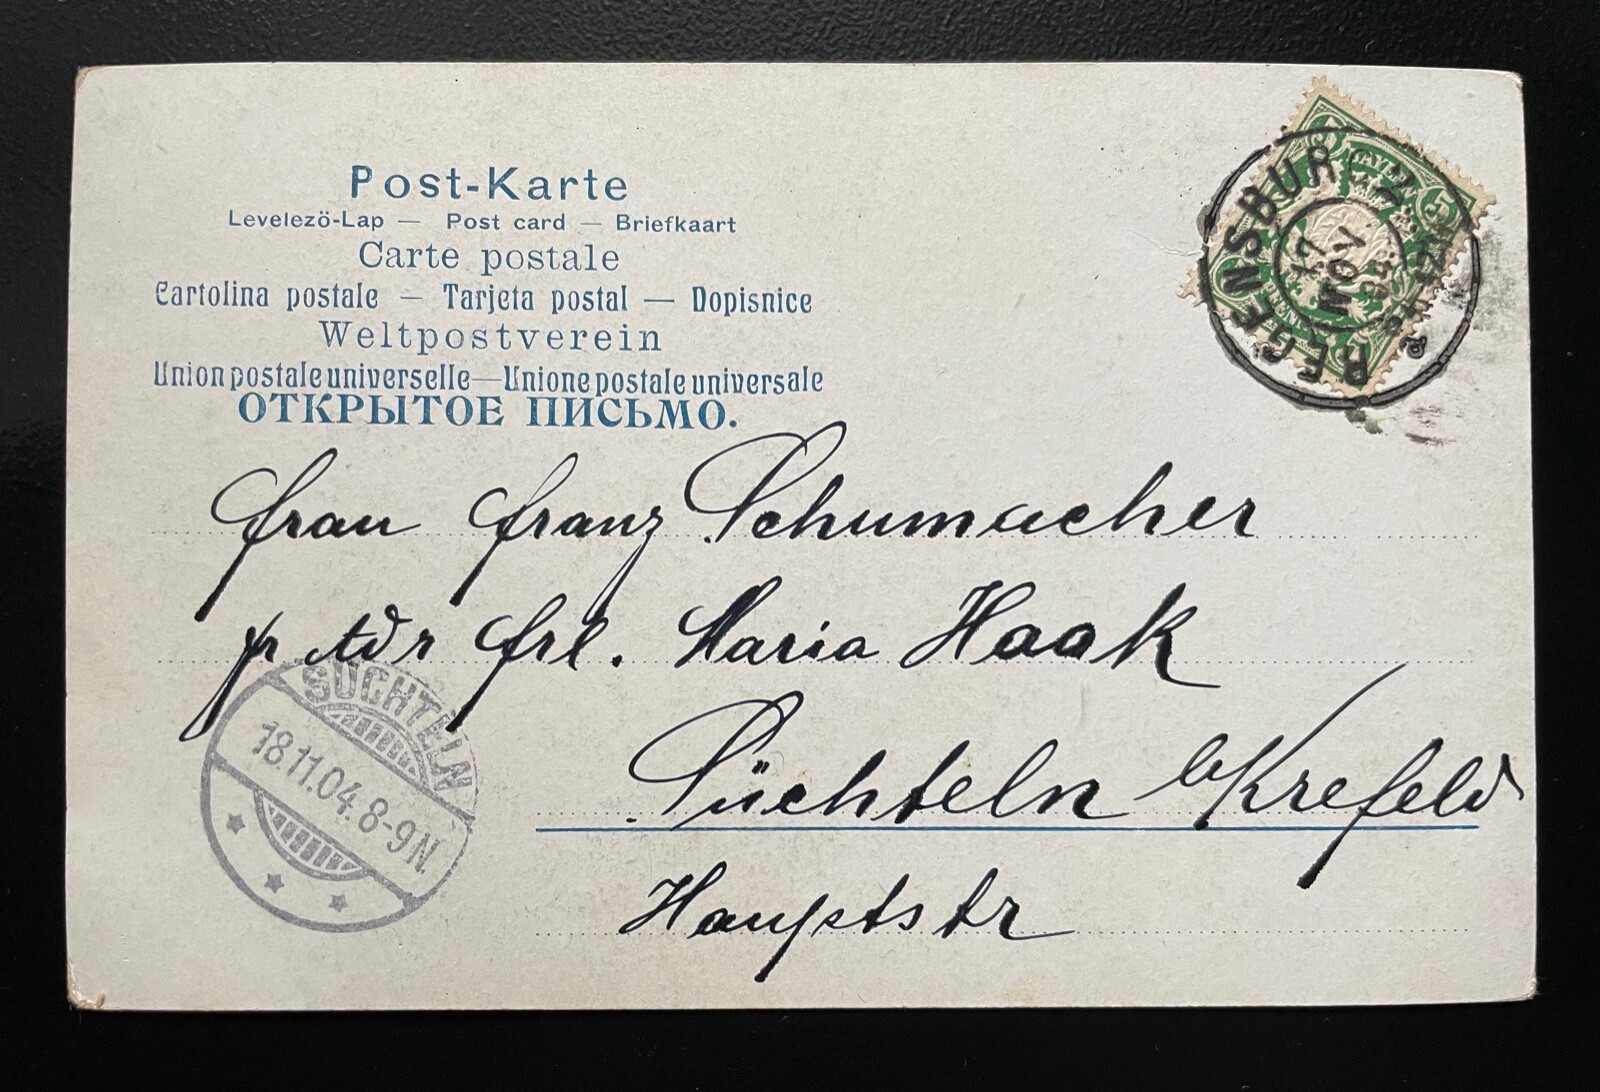 Post-Karte
Levelezö-Lap — Post card — Briefkaart
Carte postale
Cartolina postale — Tarjeta postal — Dopisnice
Weltpostverein
Union postale universelle — Unione postale universale
ОТКРЫТОЕ ПИСЬМО.
REGENSBURG
17
NOV
BAYERN
5
Frau Franz Schumacher
pr Adr Frl. Maria Haak
Süchteln b/Krefeld
Hauptstr
SÜCHTELN
18.11.04.8-9N.